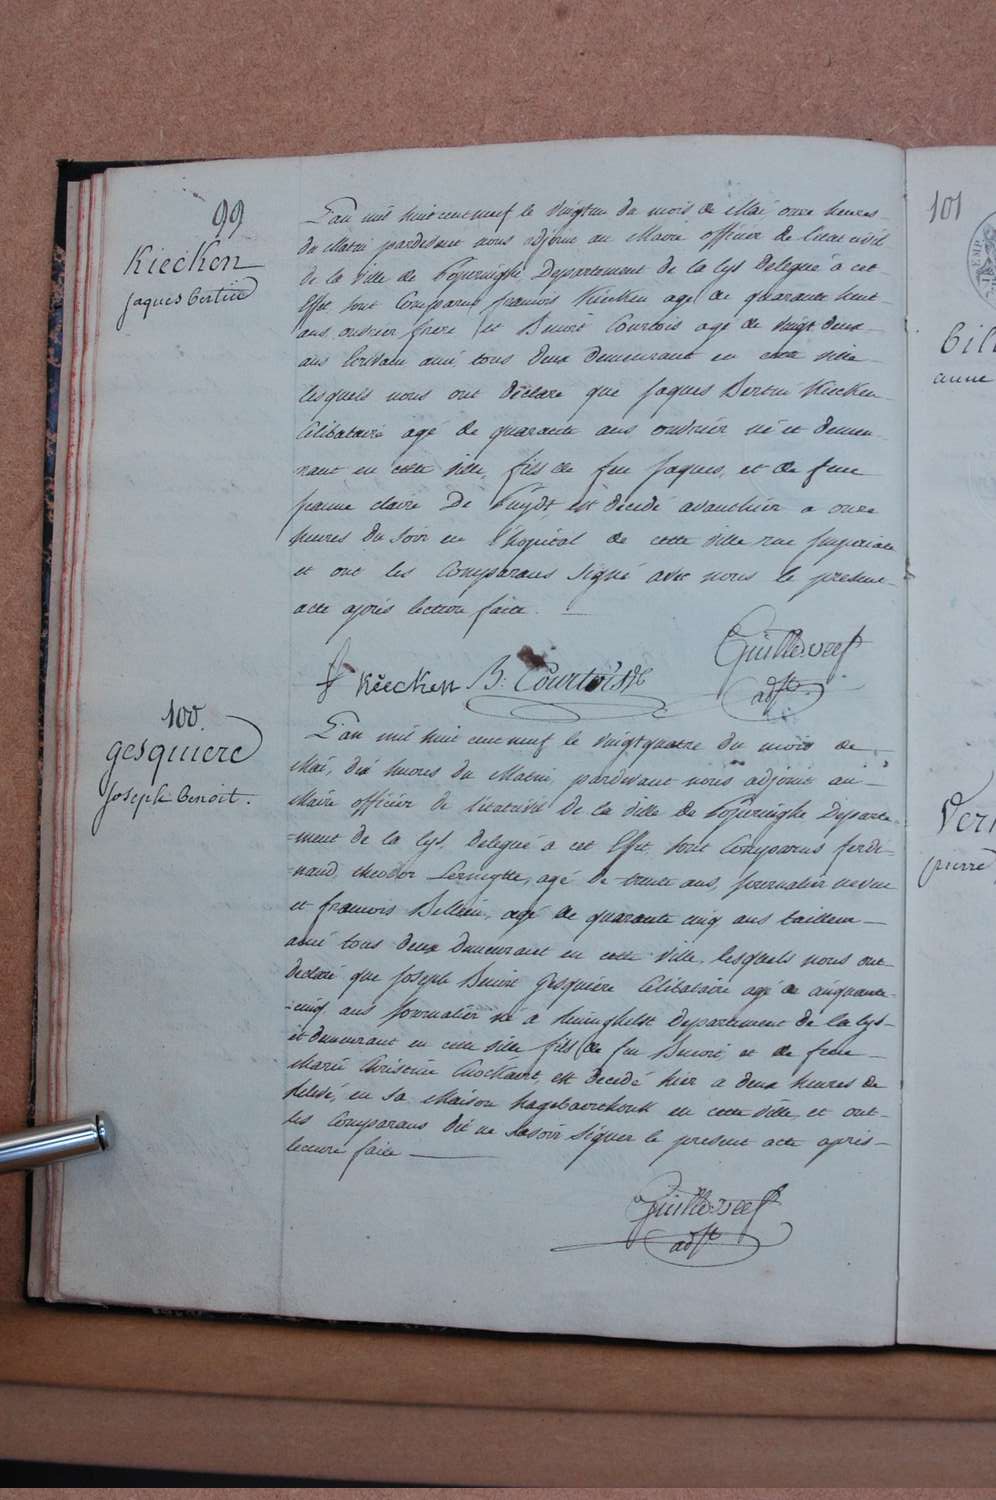 99
Kiecken
Jaques bertin
L'an mil huit cent neuf le vingtun du mois de Mai, onze heures
du Matin pardevant nous adjoint au Maire officier de l'état civil
de la ville de Poperinghe, Departement de la lys delegué à cet
Effet, sont Comparus françois Kiecken agé de quarante huit
ans, ouvrier, frere, et Benoit Courtois agé de vingt deux
ans Ecrivain ami, tous deux demeurant en cette ville
lesquels nous ont déclaré que Jaques Bertin Kiecken
Célibataire agé de quarante ans ouvrier né et demeu
rant en cette ville, fils de feu Jaques, et de feue
jeanne claire De Puydt, est décédé avanthier a onze
heures du soir en l'hopital de cette ville rue Imperiale
et ont les Comparans signé avec nous le present
acte après lecture faite.
f Kiecken B: Courtois
adjt.
100.
gesquiere
Joseph benoit.
L'an mil huit cent neuf le vingtquatre du mois de
Mai, dix heures du Matin, pardevant nous adjoint au
Maire officier de l'état civil de la ville de Poperinghe Departe
-ment de la lys, delegué à cet Effet, sont Comparus ferdi-
-nand theodor, agé de trente ans, journalier neveu
et françois, agé de quarante cinq ans tailleur
ami tous deux demeurant en cette ville, lesquels nous ont
declaré que Joseph Benoit gesquière Célibataire agé de cinquante
-cinq ans journalier né a Reninghelst departement de la lys
et demeurant en cette ville fils de feu Benoit et de feue
Marie Christine, est decedé hier a deux heures de
relevé, en sa Maison en cette ville, et ont
les Comparans dit ne savoir signer le present acte après
lecture faite
adjt
101
anne
pierre